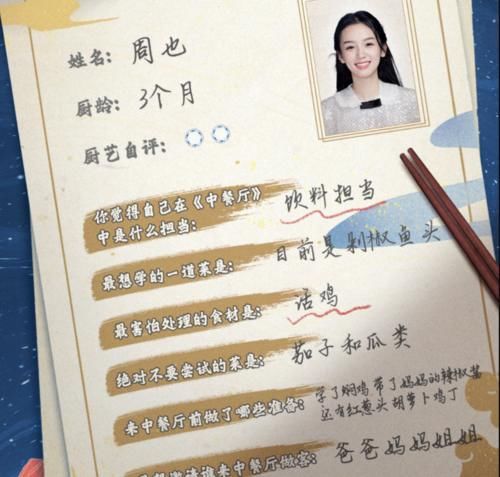 姓名：周也
厨龄：3个月
厨艺自评：
你觉得自己在《中餐厅》
中是什么担当：饮料担当
最想学的一道菜是：目前是剁椒鱼头
最害怕处理的食材是：活鸡
绝对不要尝试的菜是：茄子和瓜类
来中餐厅前做了哪些准备：学了焖鸡 带了妈妈的辣椒酱
还有红葱头 胡萝卜鸡丁
请谁来中餐厅做客：爸爸妈妈姐姐